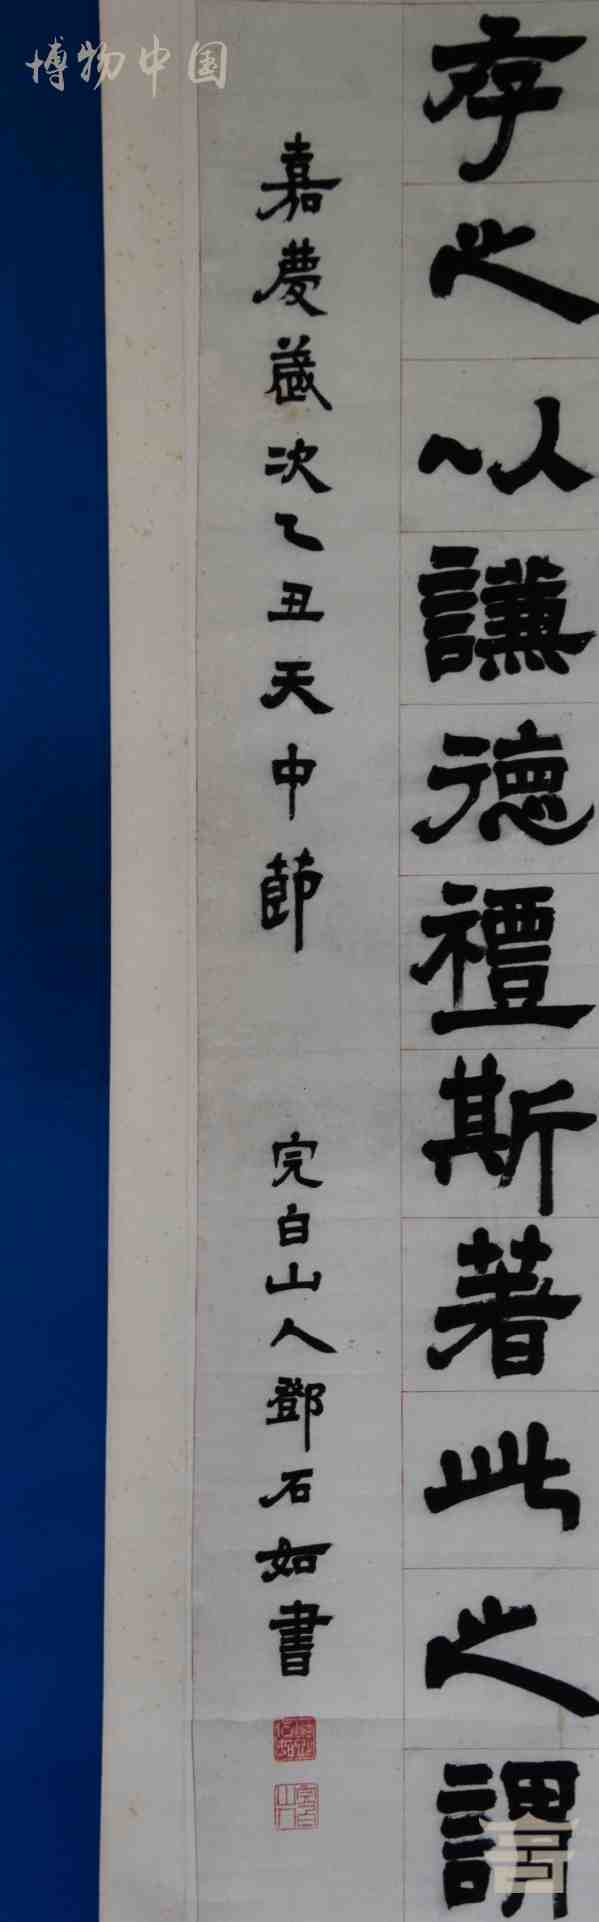 博物中国
存之以謙德禮斯著此之謂
嘉慶歲次乙丑天中節 完白山人鄧石如書